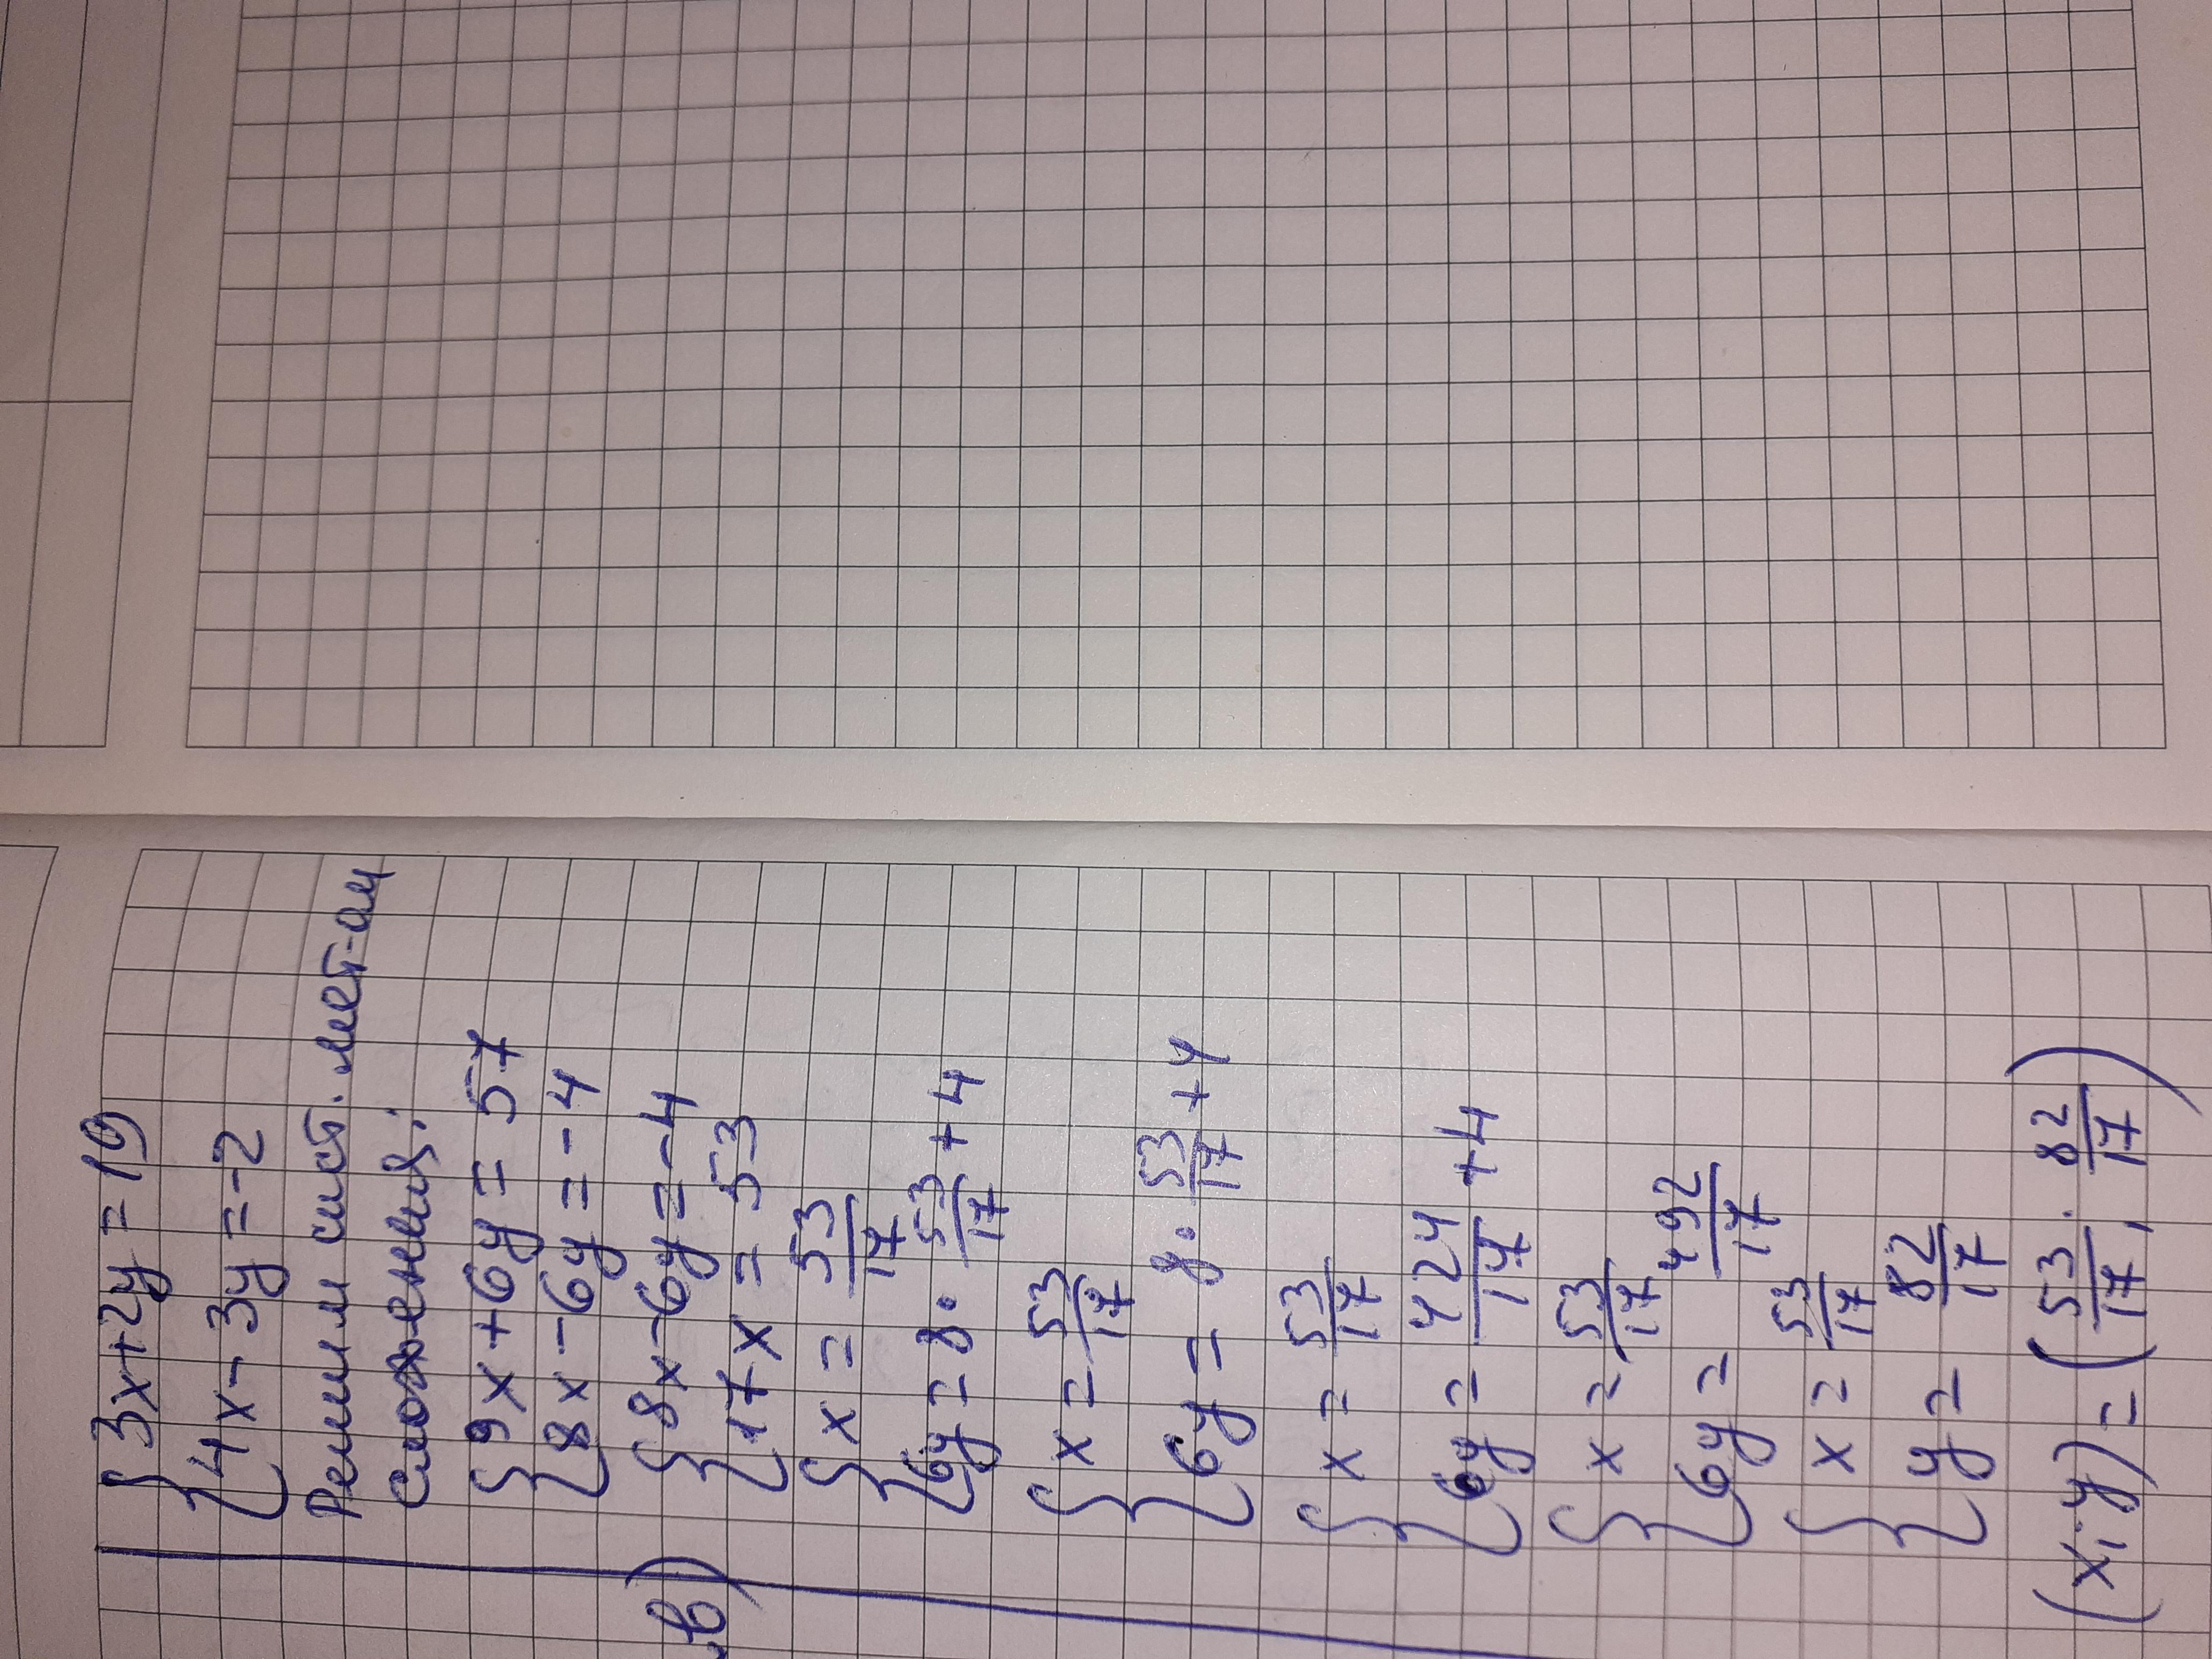 {3x+2y=19
{4x-3y=-2
Решим сист. мет-ом
сложения:
{9x+6y=57
{8x-6y=-4
в)
{8x-6y=-4
{17x=53
{x=53/17
{6y=8·53/17+4
{x=53/17
{6y=8·53/17+4
{x=53/17
{6y=424/17+4
{x=53/17
{6y=492/17
{x=53/17
{y=82/17
(x;y)=(53/17; 82/17)